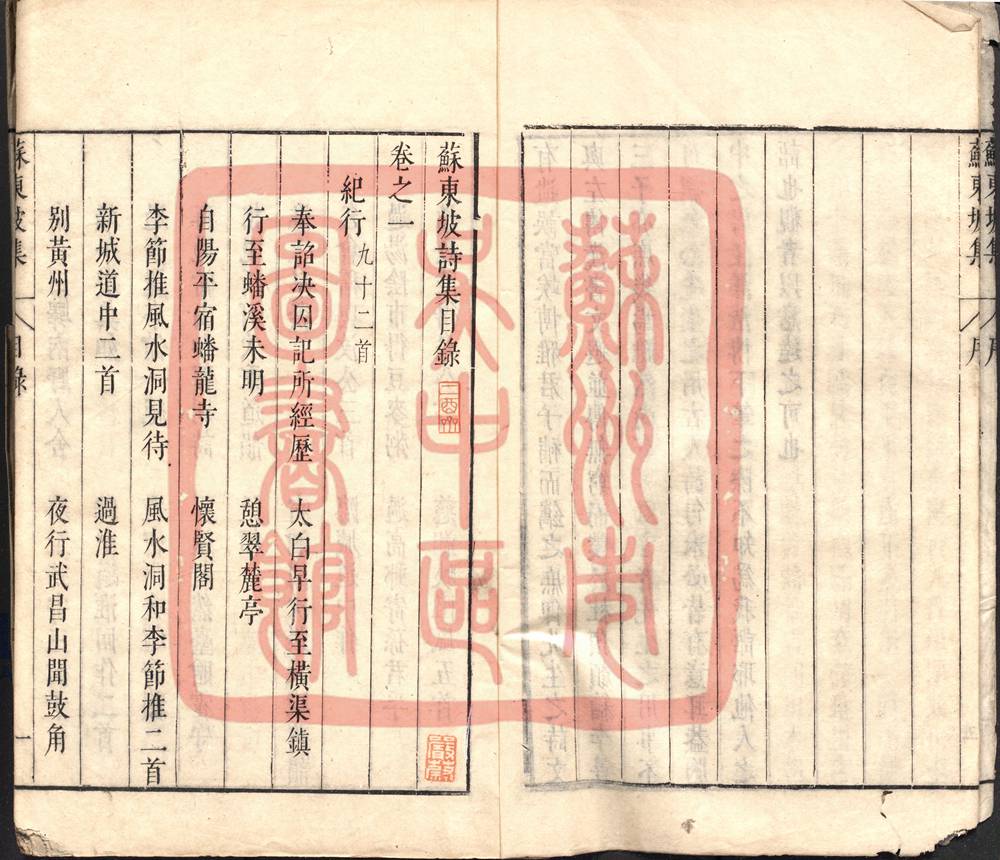 蘇東坡集
序
蘇東坡詩集目錄
卷之一
紀行 九十二首
奉詔決囚記所經歷 太白早行至橫渠鎮
行至蟠溪未明 憩翠麓亭
自陽平宿蟠龍寺 懷賢閣
李節推風水洞見待 風水洞和李節推二首
新城道中二首 過淮
別黃州 夜行武昌山聞鼓角
蘇東坡集 目錄 一
蘇州市
吳中區
圖書館